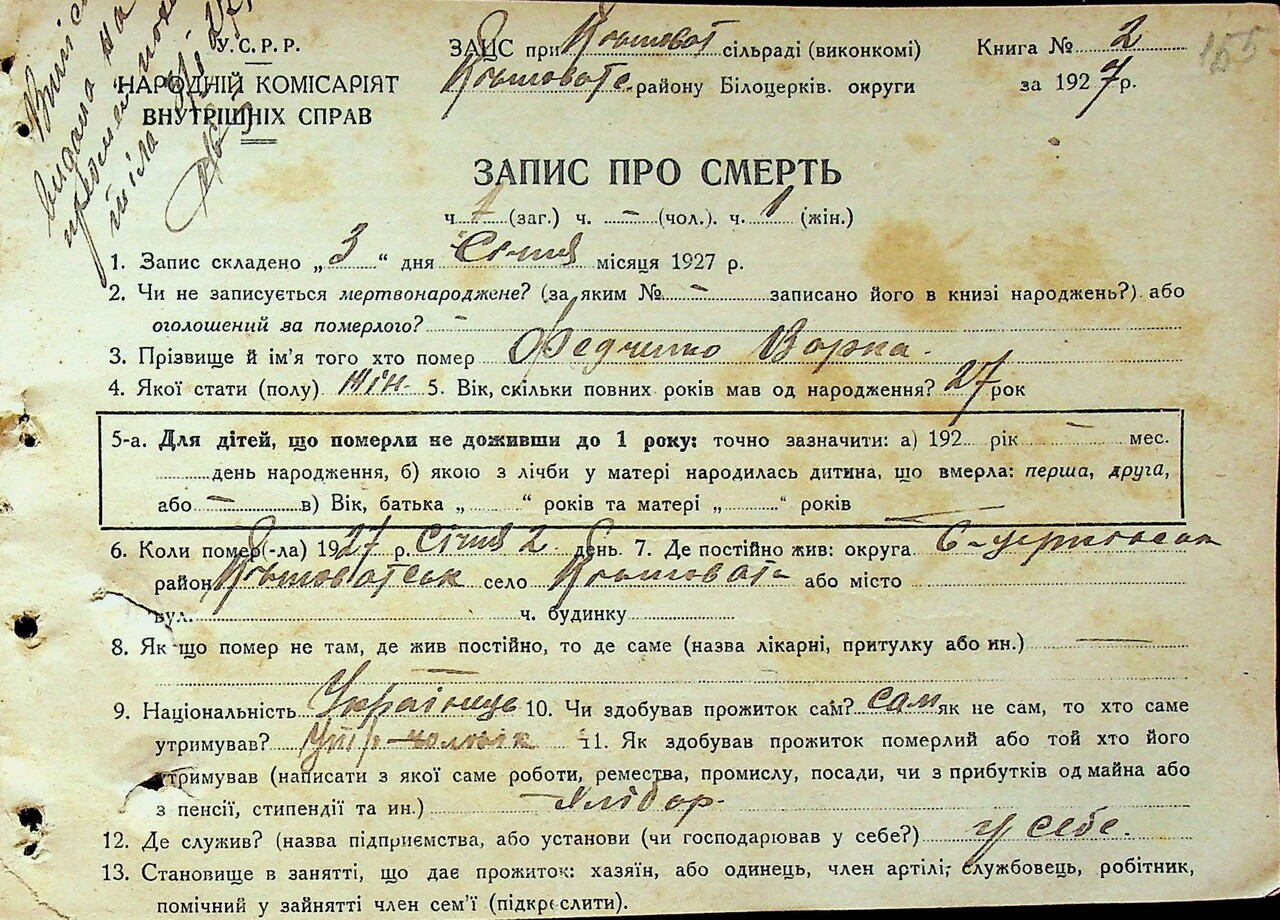 У.С.Р.Р.
НАРОДНІЙ КОМІСАРІЯТ
ВНУТРІШНІХ СПРАВ
ЗАЦС при сільраді (виконкомі)
району Білоцерків. округи
Книга № 2
за 1927 р.
155
ЗАПИС ПРО СМЕРТЬ
ч. 1 (заг.) ч. – (чол.). ч. 1 (жін.)
1. Запис складено „ 3 “ дня Січня місяця 1927 р.
2. Чи не записується мертвонароджене? (за яким № – записано його в книзі народжень?) або
оголошений за померлого? –
3. Прізвище й ім'я того хто помер Федченко Варка.
4. Якої стати (полу) жін. 5. Вік, скільки повних років мав од народження? 27 рок
5-а. Для дітей, що померли не доживши до 1 року: точно зазначити: а) 192 рік – мес.
день народження, б) якою з лічби у матері народилась дитина, що вмерла: перша, друга,
або – в) Вік, батька „ “ років та матері „ “ років
6. Коли помер(-ла) 1927 р. Січня 2 день. 7. Де постійно жив: округа
район село або місто
вул. ч. будинку
8. Як що помер не там, де жив постійно, то де саме (назва лікарні, притулку або ин.) —
9. Національність Українець 10. Чи здобував прожиток сам? сам як не сам, то хто саме
утримував? 11. Як здобував прожиток померлий або той хто його
утримував (написати з якої саме роботи, ремества, промислу, посади, чи з прибутків од майна або
з пенсії, стипендії та ин.) Хлібор.
12. Де служив? (назва підприємства, або установи (чи господарював у себе?) у себе.
13. Становище в занятті, що дає прожиток: хазяїн, або одинець, член артілі, службовець, робітник,
помічний у зайнятті член сем'ї (підкреслити).